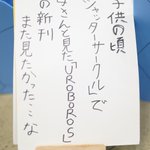 子供の頃
シャッターサークルで
さんと見た「UROBOROS」
の新刊
また見たかったこな